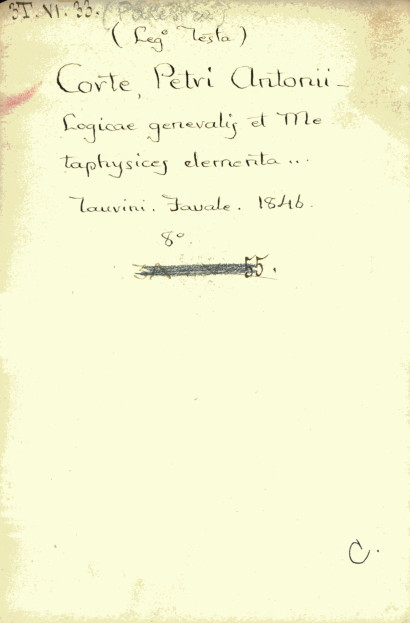 3T. VI. 33.
(Leg.º Testa)
Corte, Petri Antonii_
Logicae generalis et Me
taphysices elementa...
Taurini. Favale. 1846.
8º.
55.
C.